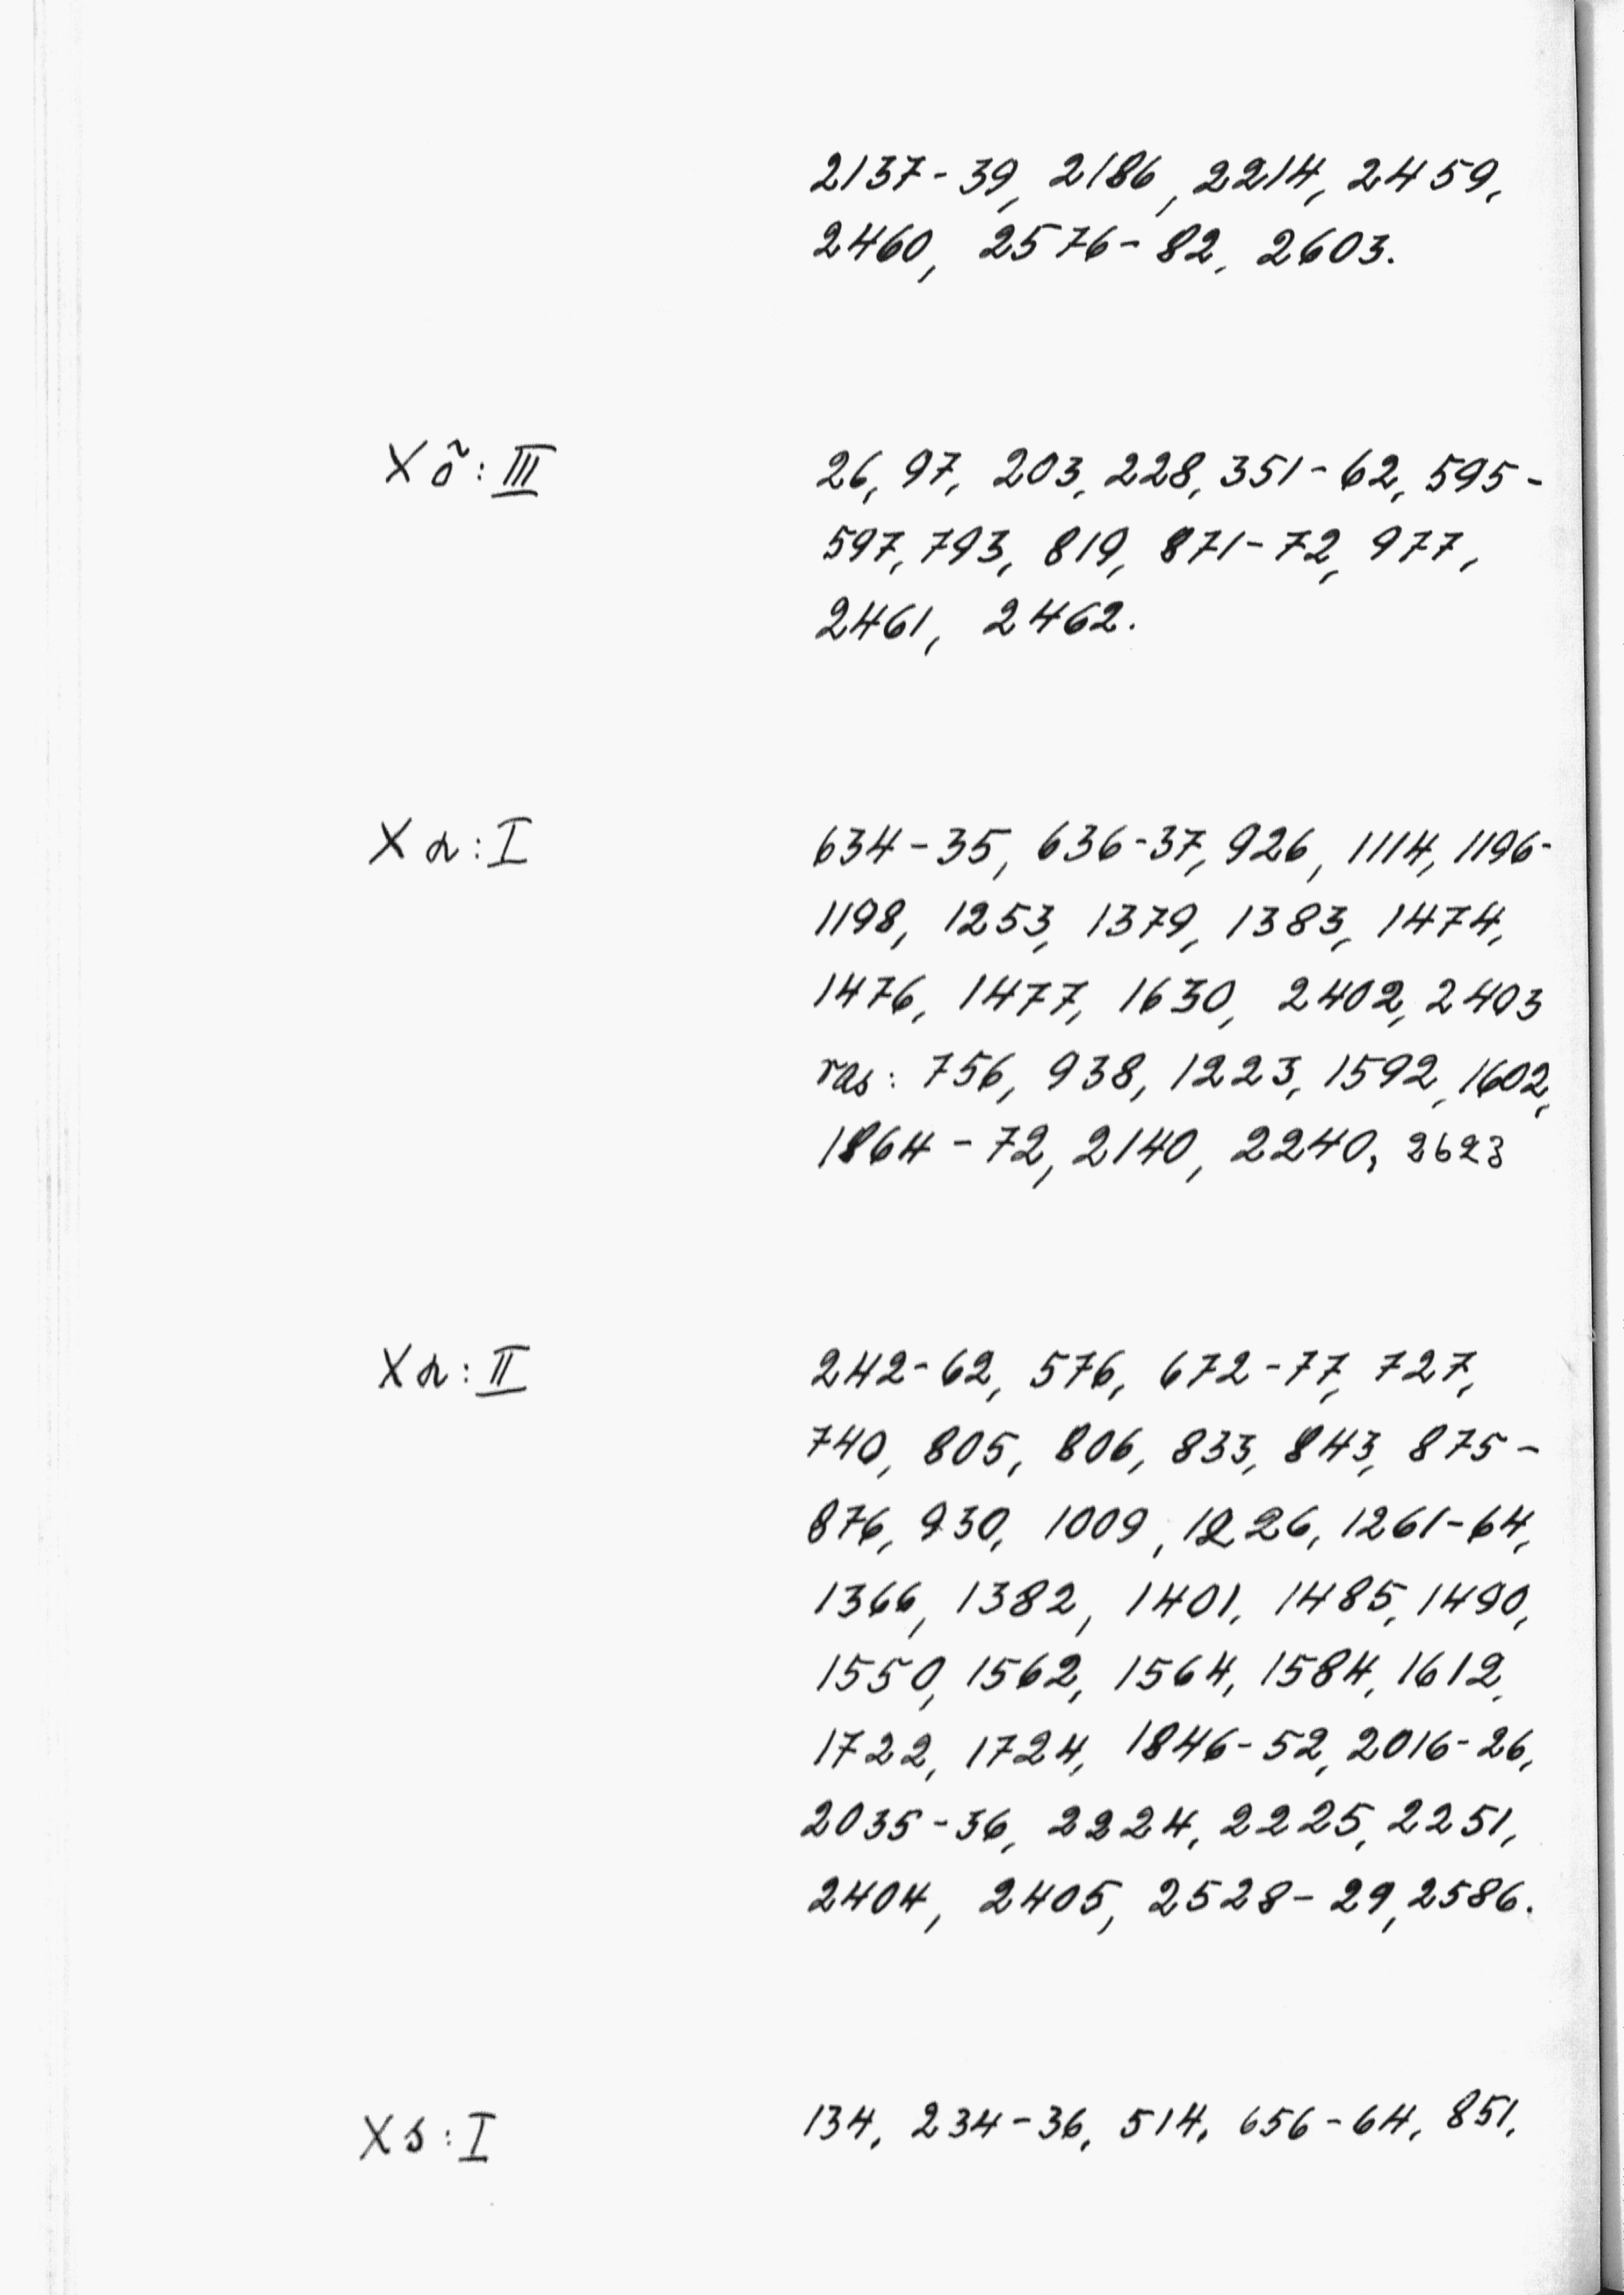 2137-39, 2186, 2214, 2459,
2460, 2576-82, 2603.
Xõ: III 26, 97, 203, 228, 351-62, 595-
597, 793, 819, 871-72, 977,
2461, 2462.
Xr: I 634-35, 636-37, 926, 1114, 1196-
1198, 1253, 1379, 1383, 1474,
1476, 1477, 1630, 2402, 2403
ras: 756, 938, 1223, 1592, 1602,
1864-72, 2140, 2240, 2623
Xr: II 242-62, 576, 672-77, 727,
740, 805, 806, 833, 843, 875-
876, 930, 1009, 1226, 1261-64,
1366, 1382, 1401, 1485, 1490,
1550, 1562, 1564, 1584, 1612,
1722, 1724, 1846-52, 2016-26,
2035-36, 2224, 2225, 2251,
2404, 2405, 2528-29, 2586.
Xs: I 134, 234-36, 514, 656-64, 851,